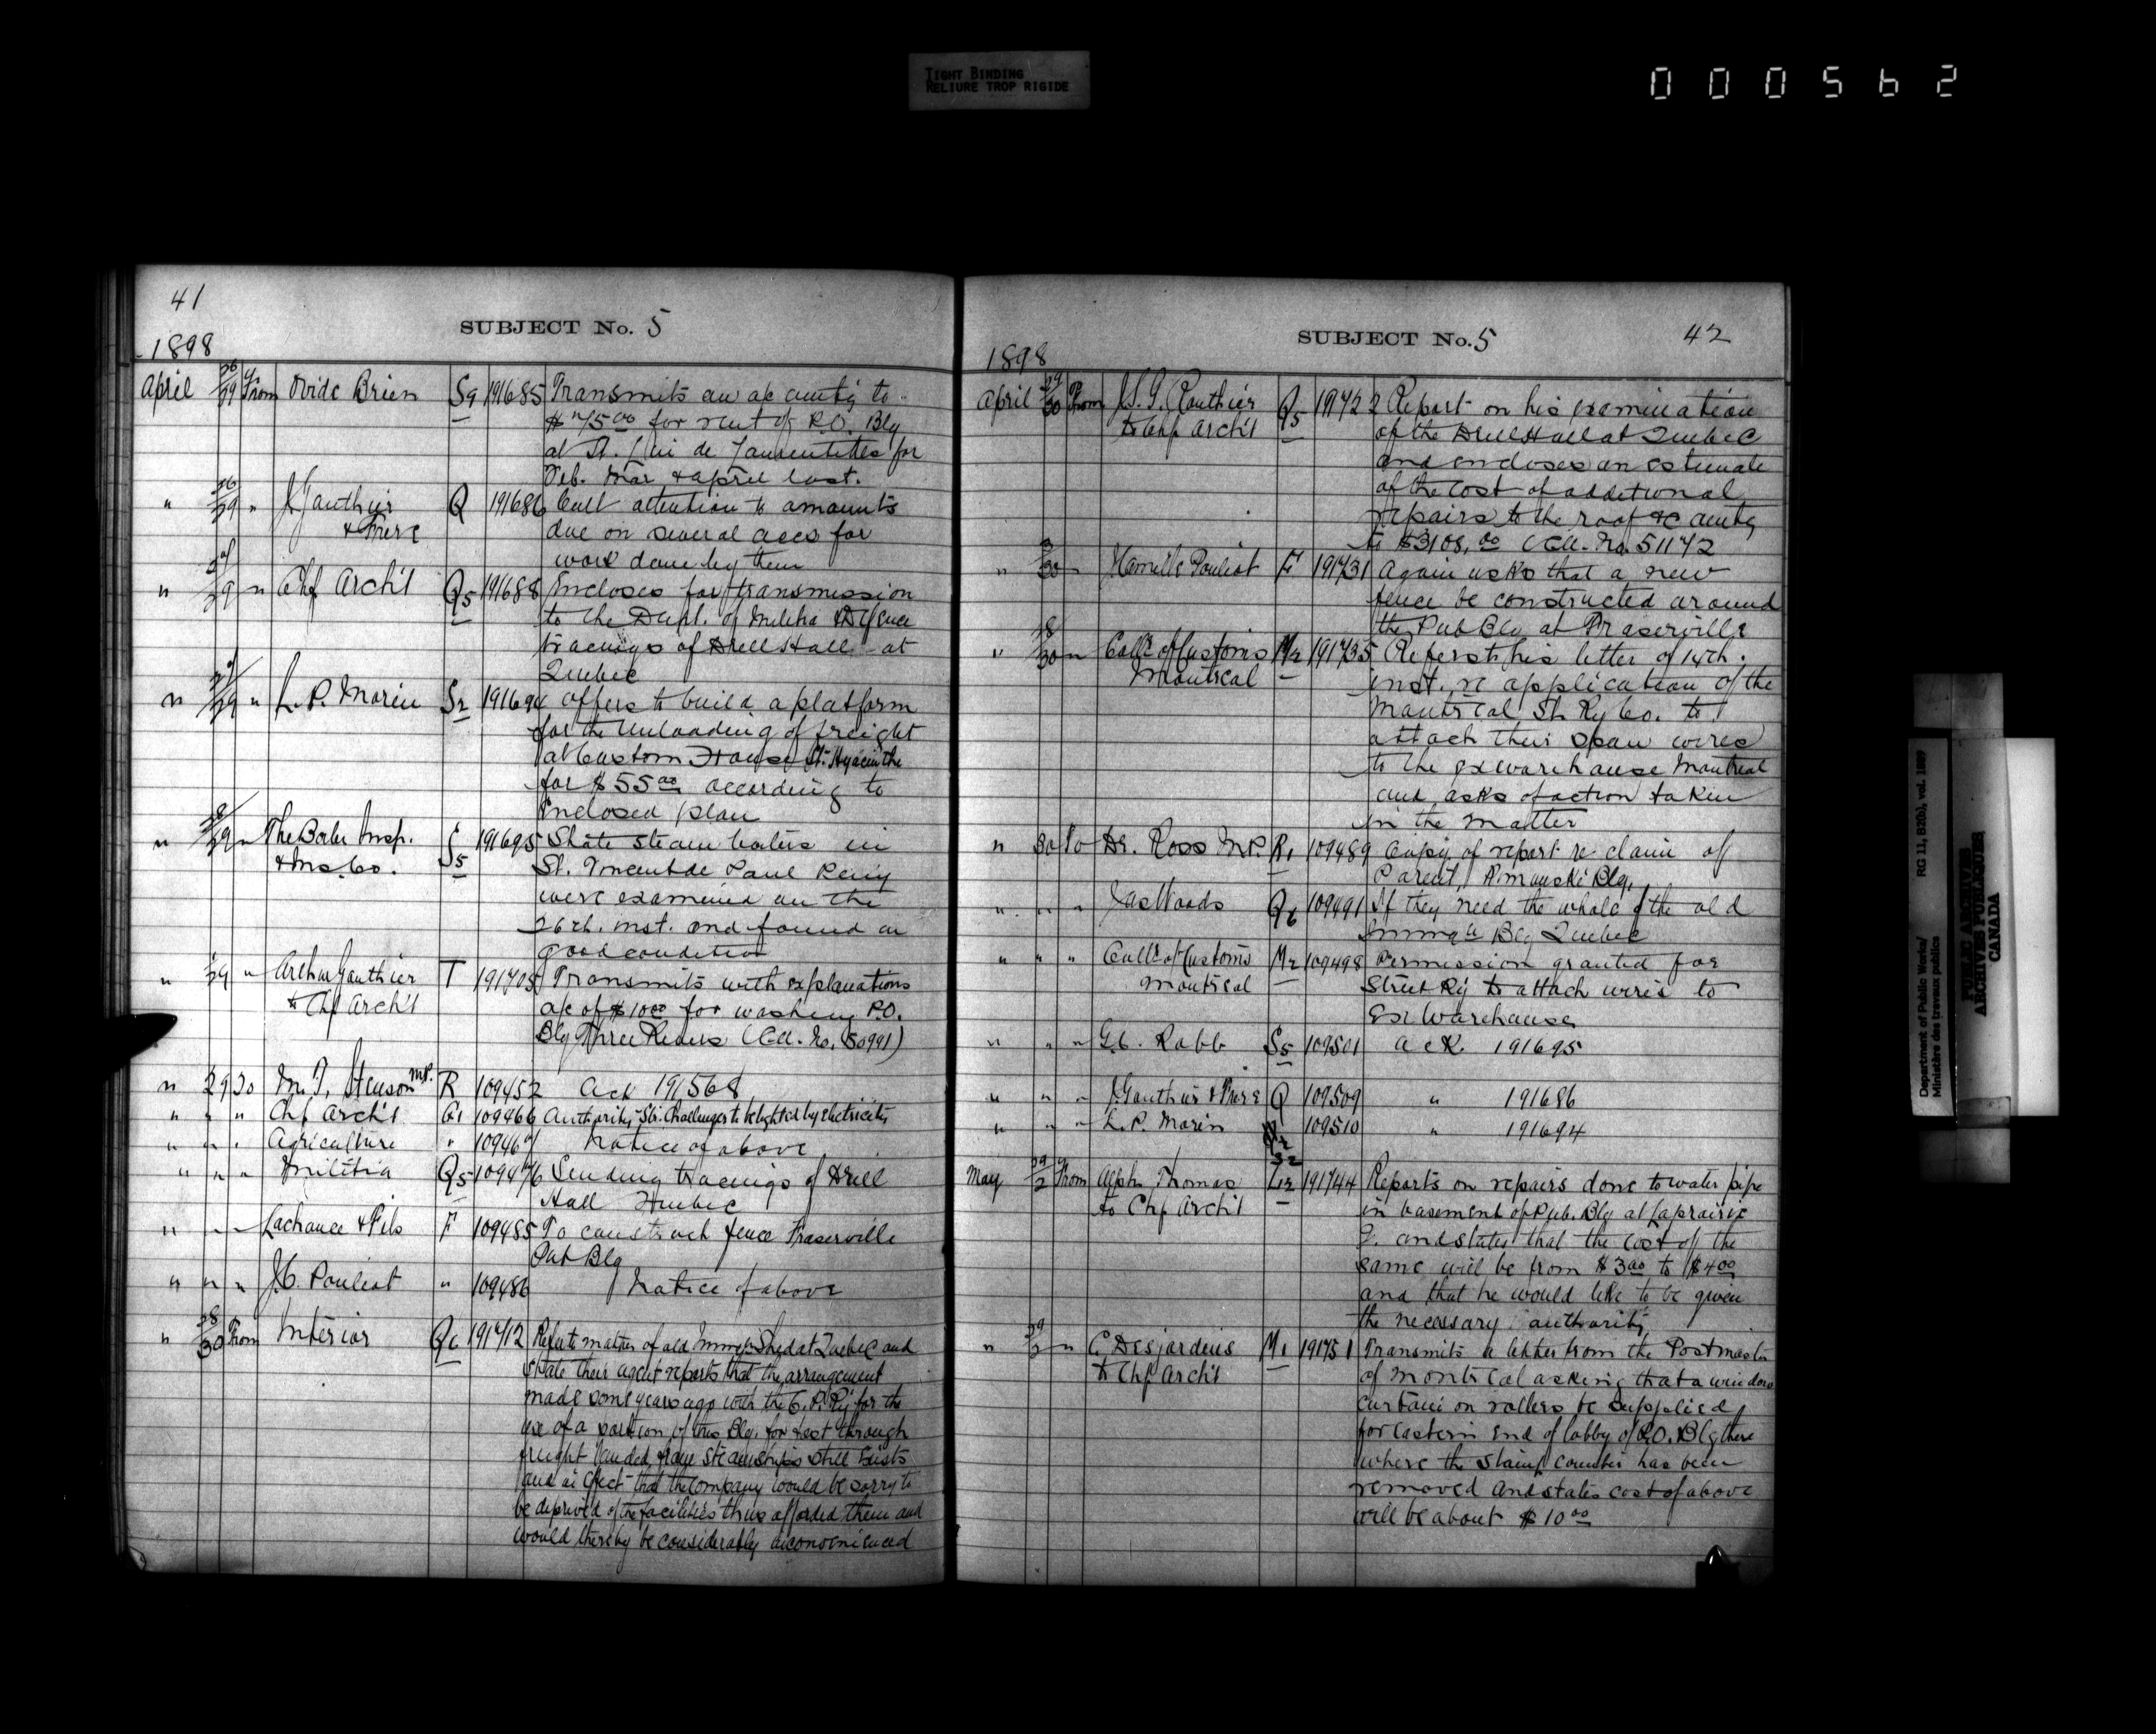 TIGHT BINDING
RELIURE TROP RIGIDE
000562
41
SUBJECT No. 5
1898
April 26/29 From Ovide Brien S9 191685 Transmits an a/c amtg to
$75.00 for rent of P.O. Blg
at St. de for
Feb. Mar & april last.
" 26/29 " J Gauthier Q 191686 Call attention to amounts
& Frere due on several accs for
work done by them
" 27/29 " Chf Arch't Q5 191688 Encloses for transmission
to the Dept. of Militia & Defence
tracings of Drill Hall at
Quebec
" 27/29 " L. P. Morin S2 191694 Offers to build a platform
for the unloading of freight
at Custom House St. Hyacinthe
for $55.00 according to
enclosed plan
" 28/29 " The Boiler Insp. S5 191695 State steam boilers in
& Ins. Co. St. Vincent de Paul Peniy
were examined on the
26th. inst. and found in
good condition
" /29 " Arthur Gauthier T 191705 Transmits with explanations
to Chf Arch't a/c of $10.00 for washing P.O.
Blg Three Rivers (Ell. No. 50991)
" 29 To M. J. Stenson M.P. R 109452 Ack 191568
" " " Chf Arch't 109466 Authority Str. Challenger to be lighted by electricity
" " " Agriculture " 109467 Notice of above
" " " Militia Q5 109476 Sending tracings of Drill
Hall Quebec
" " " Lachance & Fils F 109485 To construct fence Fraserville
Pub Blg
" " " J. C. Pouliot " 109486 Notice of above
" 28/30 From Interior Q6 191712 Refer to matter of old Immign Shed at Quebec and
state their agent reports that the arrangement
made some years ago with the C. P. Ry for the
use of a portion of this Blg. for fast through
freight landed from Steamships still exists
and in effect that the Company would be sorry to
be deprived of the facilities thus afforded them and
would thereby be considerably inconvenienced
SUBJECT No. 5 42
1898
April 29/30 From J. S. Q5 191722 Report on his examination
to Chf Arch't of the Drill Hall at Quebec
and encloses an estimate
of the cost of additional
repairs to the roof &c amtg
to $3108.00 (Ell. No. 51172
" /30 " Camille Pouliot F 191731 Again asks that a new
fence be constructed around
the Pub Blg at Fraserville
" 28/30 " Coll'r of Customs M2 191735 Refers to his letter of 14th.
Montreal inst. re application of the
Montreal St. Ry Co. to
attach their span wires
to the ex warehouse Montreal
and asks of action taken
in the matter
" 30 To Dr. Ross M.P. R1 109489 Copy of report re claim of
Parent, Rimouski Blg.
" " " Jas Woods Q6 109491 If they need the whole of the old
Immign Blg Quebec
" " " Coll'r of Customs M2 109498 Permission granted for
Montreal Street Ry to attach wires to
Ex Warehouse
" " " G. C. Robb S5 109501 ack. 191695
" " " J. Gauthier & Frere Q 109509 " 191686
" " " L. P. Morin S2 109510 " 191694
May 29/2 From Alph. Thomas L2 191744 Reports on repairs done to water pipe
to Chf Arch't in basement of Pub. Blg at Laprairie
Q. and states that the cost of the
same will be from $3.00 to $4.00
and that he would like to be given
the necessary authority
" 29/2 " C. Desjardins M1 191751 Transmits a letter from the Postmaster
to Chf Arch't of Montreal asking that a window
curtain on rollers be supplied
for eastern end of lobby of P.O. Blg there
where the stamp counter has been
removed and states cost of above
will be about $10.00
Department of Public Works/ RG 11, B2(b), vol. 1989
Ministère des travaux publics
PUBLIC ARCHIVES
ARCHIVES PUBLIQUES
CANADA